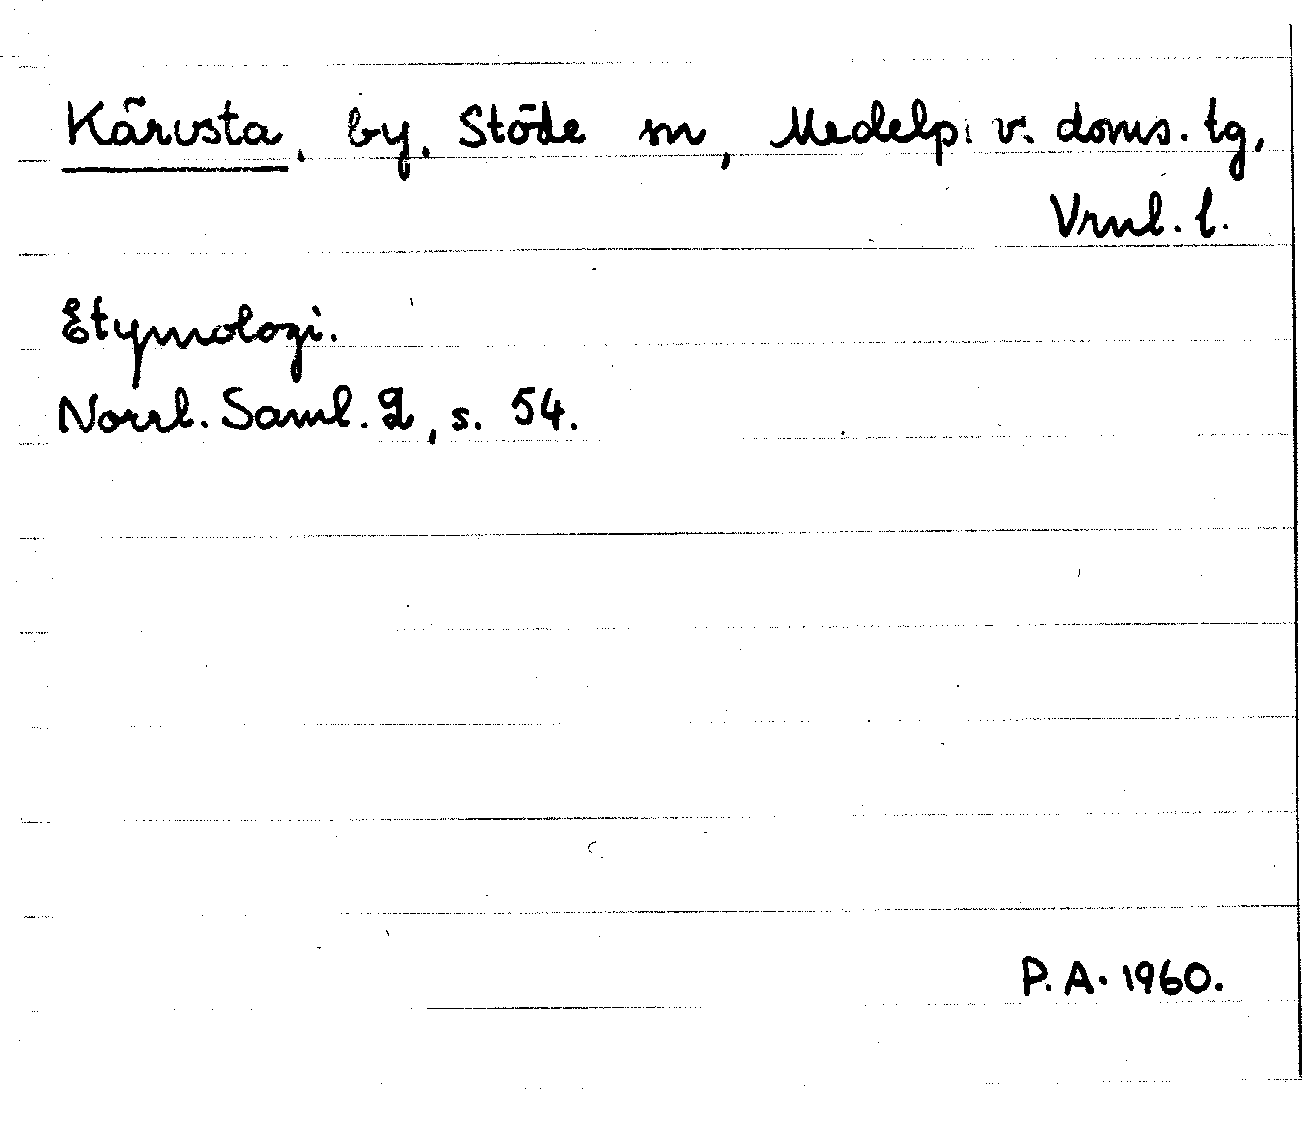 Kärvsta, by, Stöde sn, Medelp. v. doms. tg,
Vrnl. l.
Etymologi.
Norrl. Saml. 2, s. 54.
P. A. 1960.